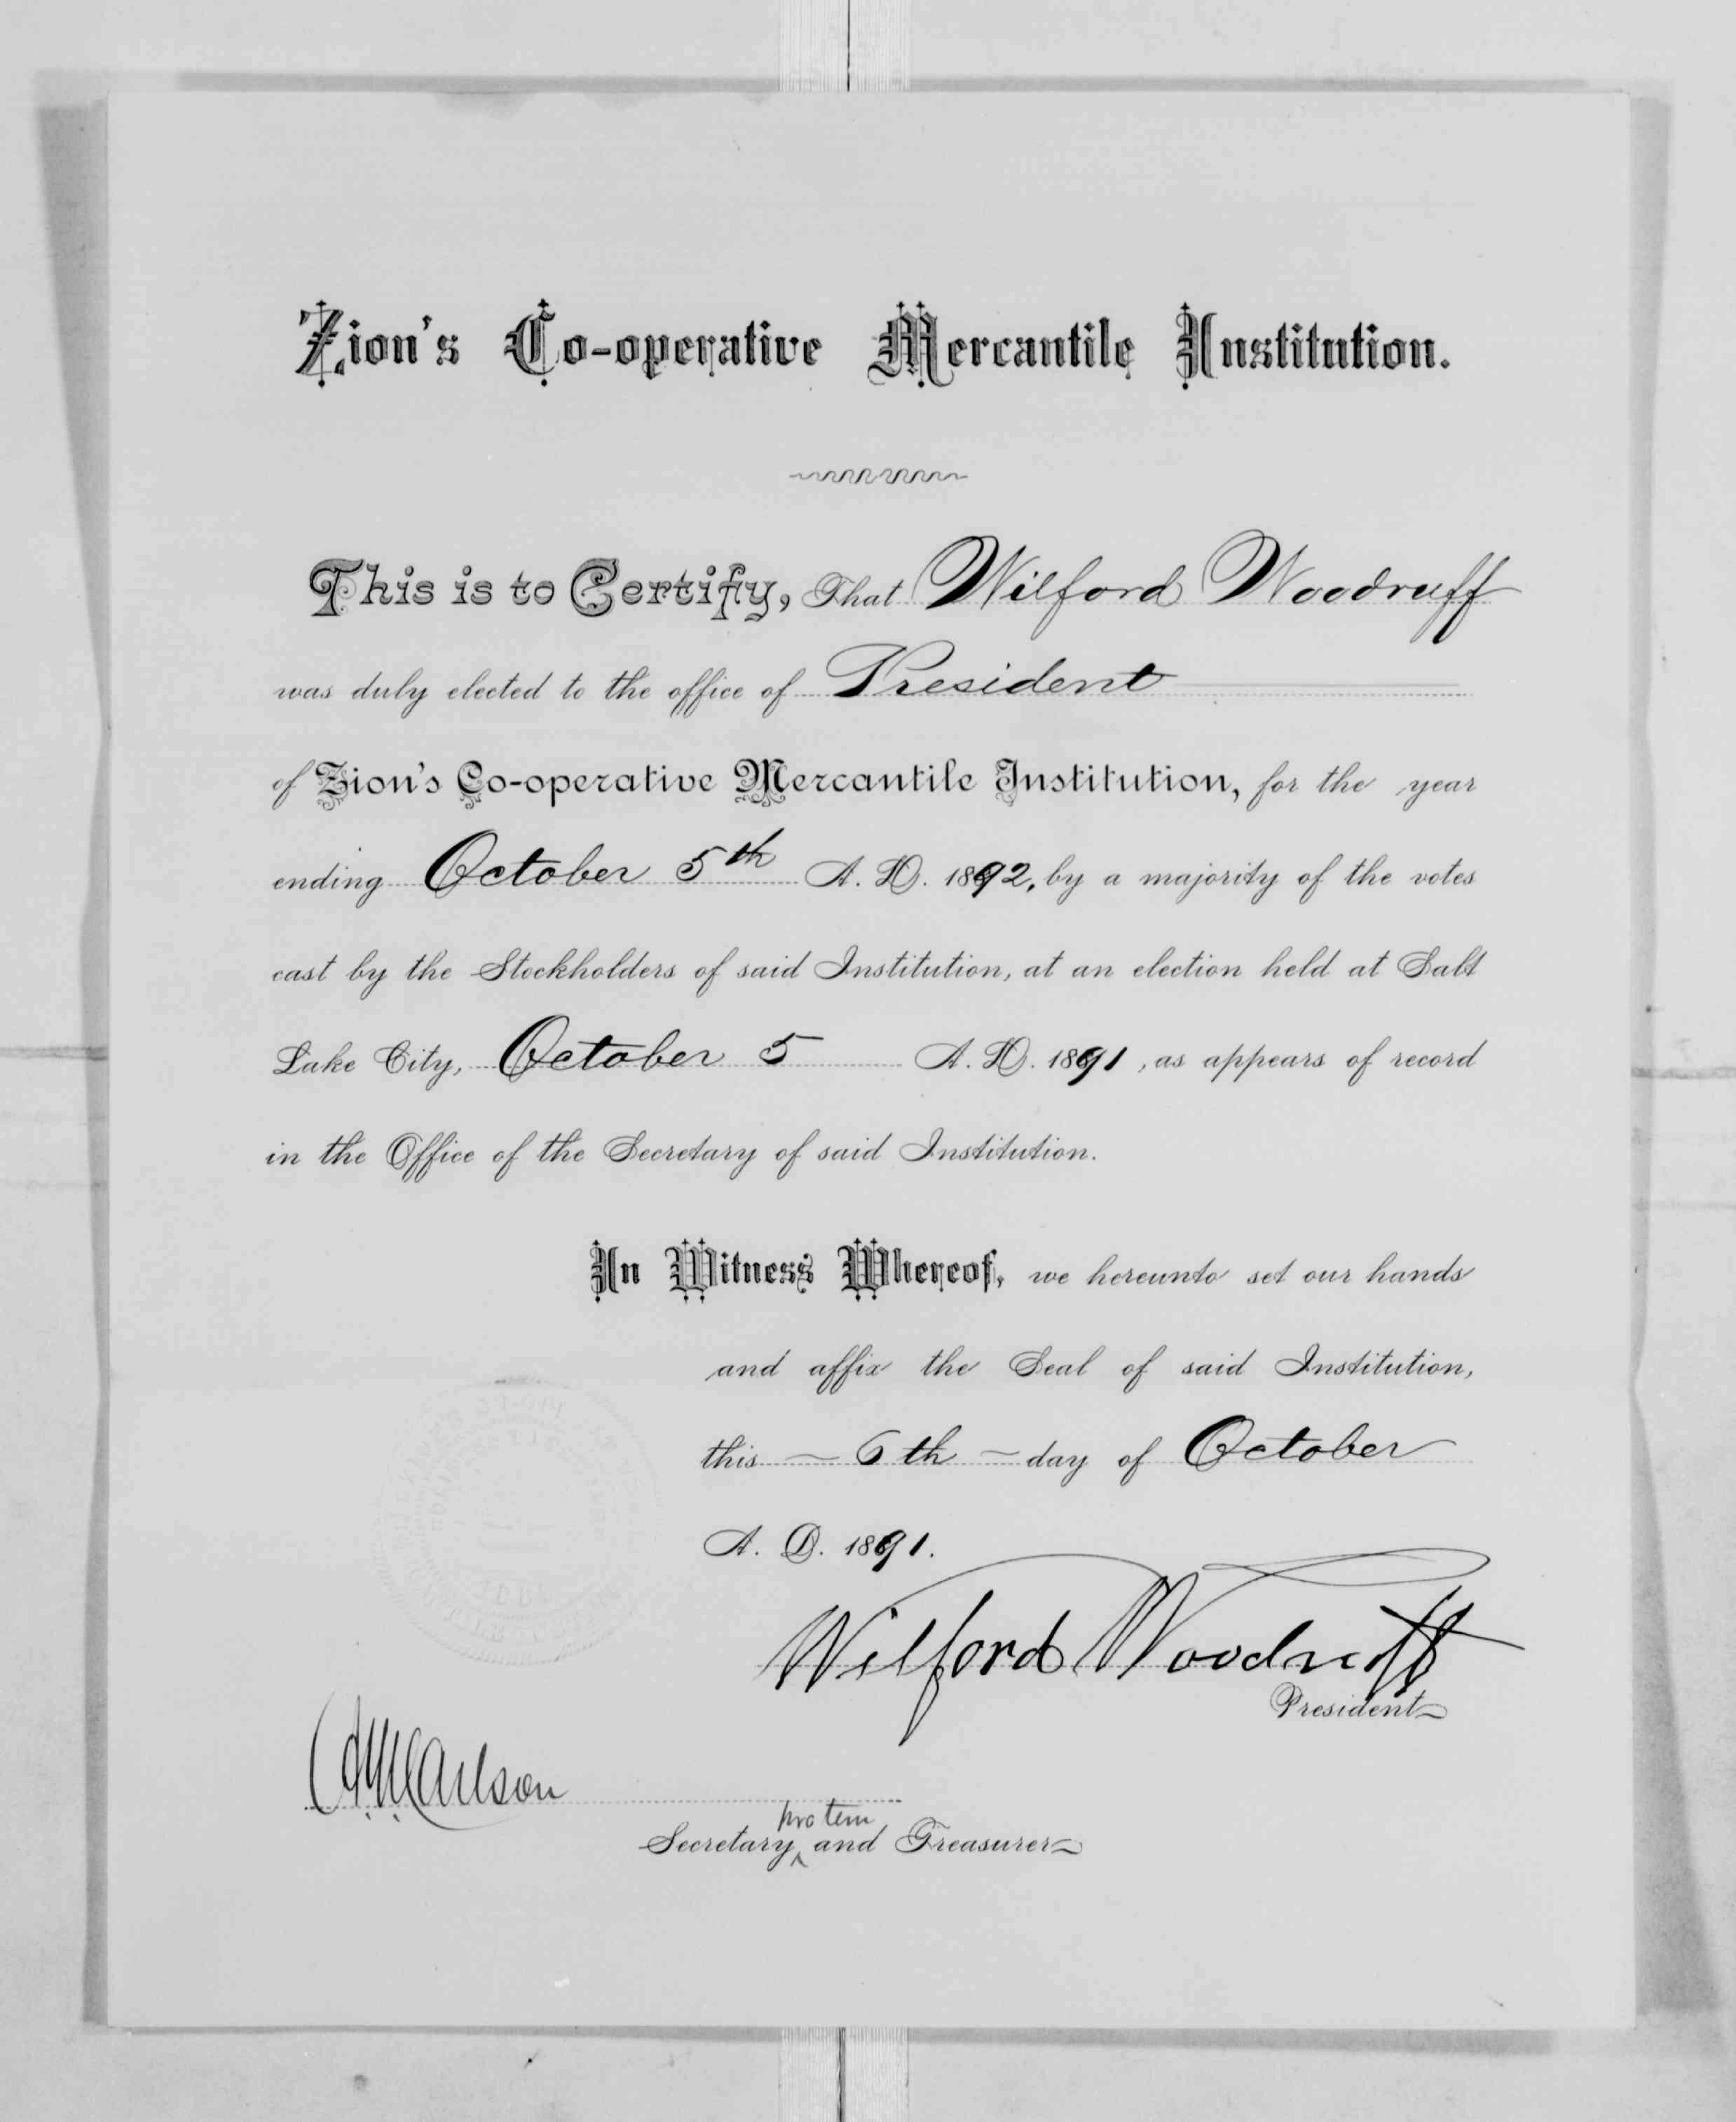 Zion's Co-operative Mercantile Institution.
This is to Certify, That Wilford Woodruff
was duly elected to the office of President
of Zion's Co-operative Mercantile Institution, for the year
ending October 5th A. D. 1892, by a majority of the votes
cast by the Stockholders of said Institution, at an election held at Salt
Lake City, October 5 A. D. 1891, as appears of record
in the Office of the Secretary of said Institution.
In Witness Whereof, we hereunto set our hands
and affix the Seal of said Institution,
this 6th day of October
A. D. 1891.
Wilford Woodruff
President
Carlson
protem
Secretary and Treasurer